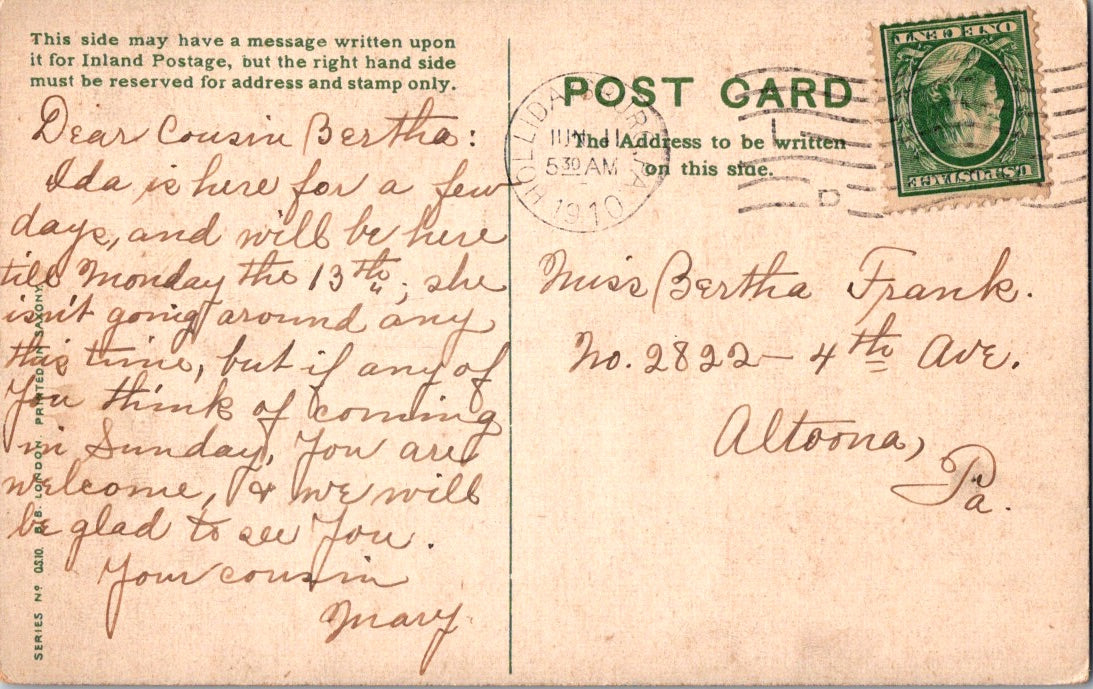 This side may have a message written upon
it for Inland Postage, but the right hand side
must be reserved for address and stamp only.
Dear Cousin Bertha:
Ida is here for a few
days, and will be here
till Monday the 13th; she
isn't going around any
this time, but if any of
You think of coming
in Sunday, You are
welcome, & we will
be glad to see You.
Your cousin
Mary
SERIES Nº OS10. B.B. LONDON. PRINTED IN SAXONY
POST CARD
The Address to be written
on this side.
HOLLIDAYSBURG, PA.
JUN 11
5 30 AM
1910
ONE CENT
U.S. POSTAGE
Miss Bertha Frank.
No. 2822 - 4th Ave.
Altoona,
Pa.